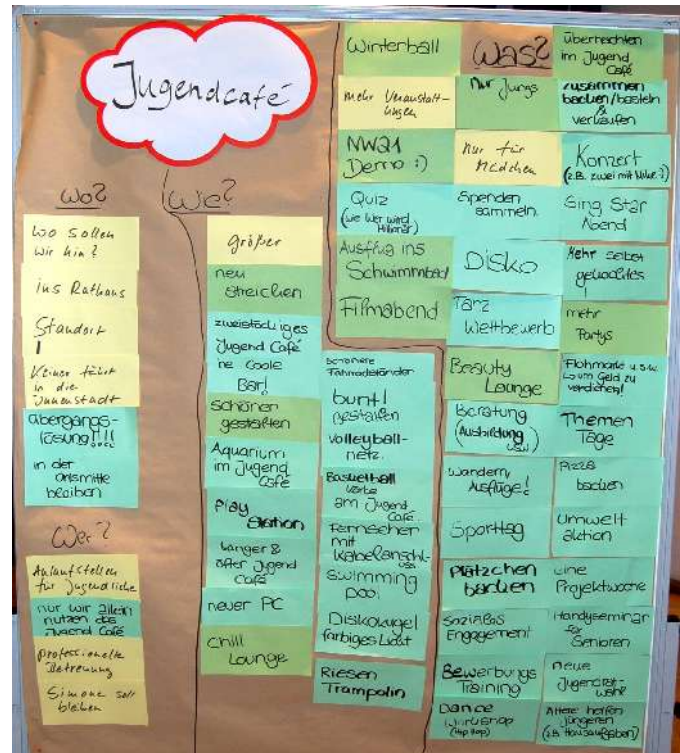 Jugendcafé
Wo?
Wo sollen
wir hin?
ins Rathaus
Standort
!
Keiner fährt
in die
Innenstadt
Übergangs-
lösung!!!!
in der
Ortsmitte
bleiben
Wer?
Anlaufstellen
für Jugendliche
nur wir allein
nutzen das
Jugend Café
professionelle
Betreuung
Simone soll
bleiben
Wie?
größer
neu
streichen
zweistöckiges
Jugend Café
ne coole
Bar!
schöner
gestalten
Aquarium
im Jugend
Café
Play
Station
länger &
öfter Jugend
Café
neuer PC
Chill
Lounge
schönere
Fahrradständer
bunt!
gestalten
Volleyball-
netz
Basketball
Körbe
am Jugend
Café
Fernseher
mit
Kabelanschl.
usw.
Swimming
pool
Diskokugel
farbiges Licht
Riesen
Trampolin
Was?
Winterball
mehr Veranstalt-
ungen
NW21
Demo :)
Quiz
(wie Wer wird
Millionär)
Ausflug ins
Schwimmbad
Filmabend
Nur Jungs
Nur für
Mädchen
Spenden
sammeln
Disko
Tanz
Wettbewerb
Beauty
Lounge
Beratung
(Ausbildung
usw.)
Wandern,
Ausflüge!
Sporttag
Plätzchen
backen
soziales
Engagement
Bewerbungs
Training
Dance
Workshop
(Hip Hop)
übernachten
im Jugend
Café
zusammen
backen/basteln
&
verkaufen
Konzert
(z.B. zwei mit :)
Sing Star
Abend
Mehr selbst
gemachtes
!
mehr
Partys
Flohmarkt u.s.w.
um Geld zu
verdienen!
Themen
Tage
Pizza
backen
Umwelt-
aktion
eine
Projektwoche
Handyseminar
für
Senioren
neue
Jugendrat-
wahl
Ältere helfen
jüngeren
(z.B. Hausaufgaben)